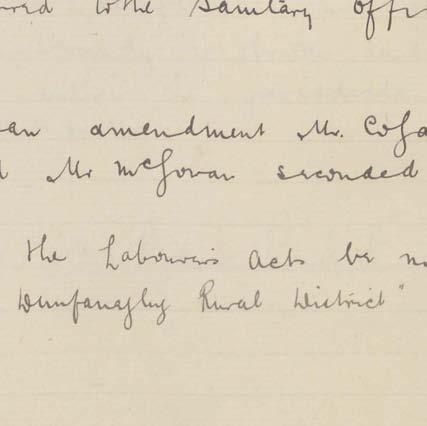 to the Sanitary
an amendment Mr.
Mr McGovan seconded
the Labourers Acts be
Dunfanaghy Rural District"